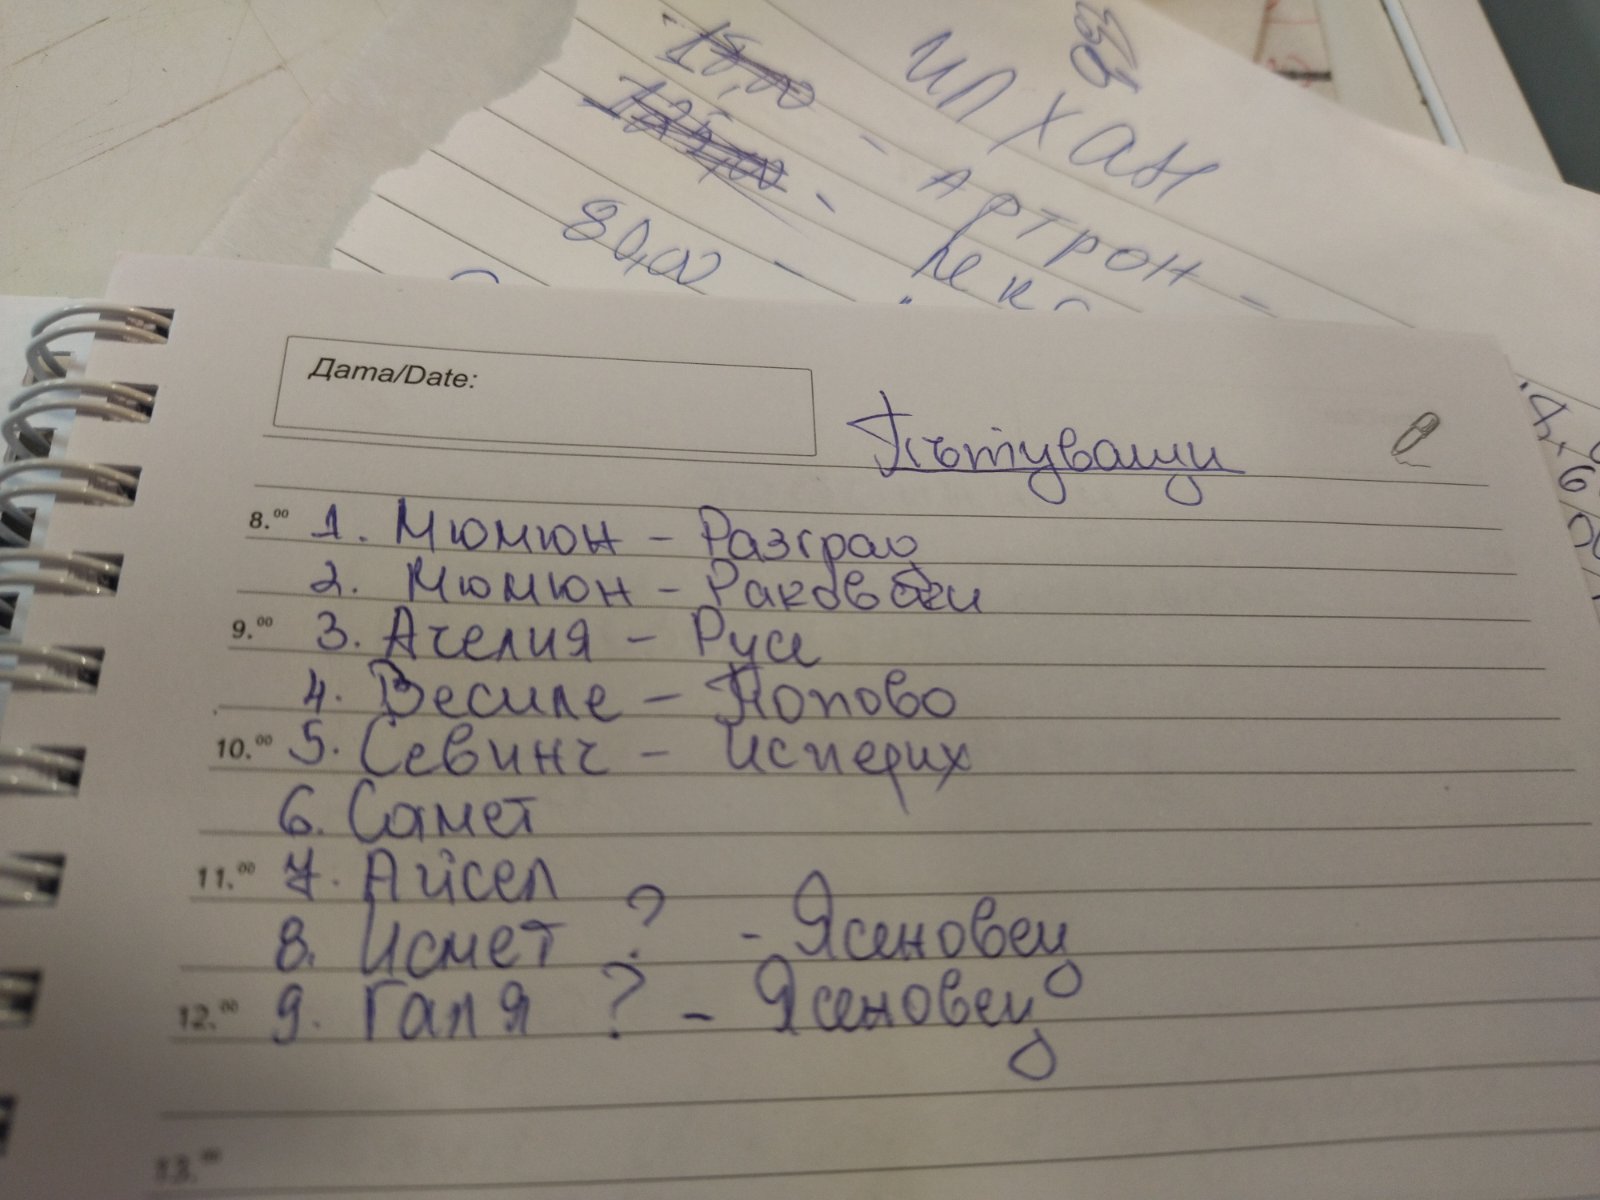 15,00 - АРТРОН -
125,00 -
80,00 -
ИЛХАН
Дата/Date:
Пътуващи
8.00 1. Мюмюн - Разград
2. Мюмюн - Раковски
9.00 3. Ачелия - Русе
4. Весиле - Попово
10.00 5. Севинч - Исперих
6. Самет
11.00 7. Айсел
8. Исмет ? - Ясеновец
12.00 9. Галя ? - Ясеновец
13.00